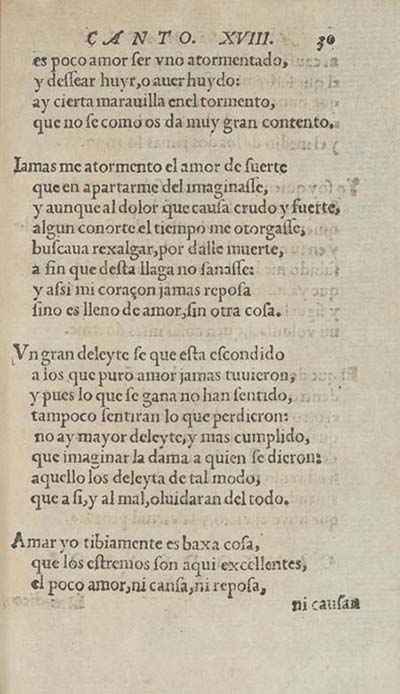 CANTO. XVIII. 30
es poco amor ser vno atormentado,
y dessear huyr, o auer huydo:
ay cierta marauilla enel tormento,
que no se como os da muy gran contento.
Iamas me atormento el amor de suerte
que en apartarme del imaginasse,
y aunque al dolor que causa crudo y fuerte,
algun conorte el tiempo me otorgasse,
buscaua rexalgar, por dalle muerte,
a fin que desta llaga no sanasse:
y assi mi coraçon jamas reposa
sino es lleno de amor, sin otra cosa.
Vn gran deleyte se que esta escondido
a los que puro amor jamas tuuieron,
y pues lo que se gana no han sentido,
tampoco sentiran lo que perdieron:
no ay mayor deleyte, y mas cumplido,
que imaginar la dama a quien se dieron:
aquello los deleyta de tal modo,
que a si, y al mal, oluidaran del todo.
Amar yo tibiamente es baxa cosa,
que los estremos son aqui excellentes,
el poco amor, ni cansa, ni reposa,
ni causan